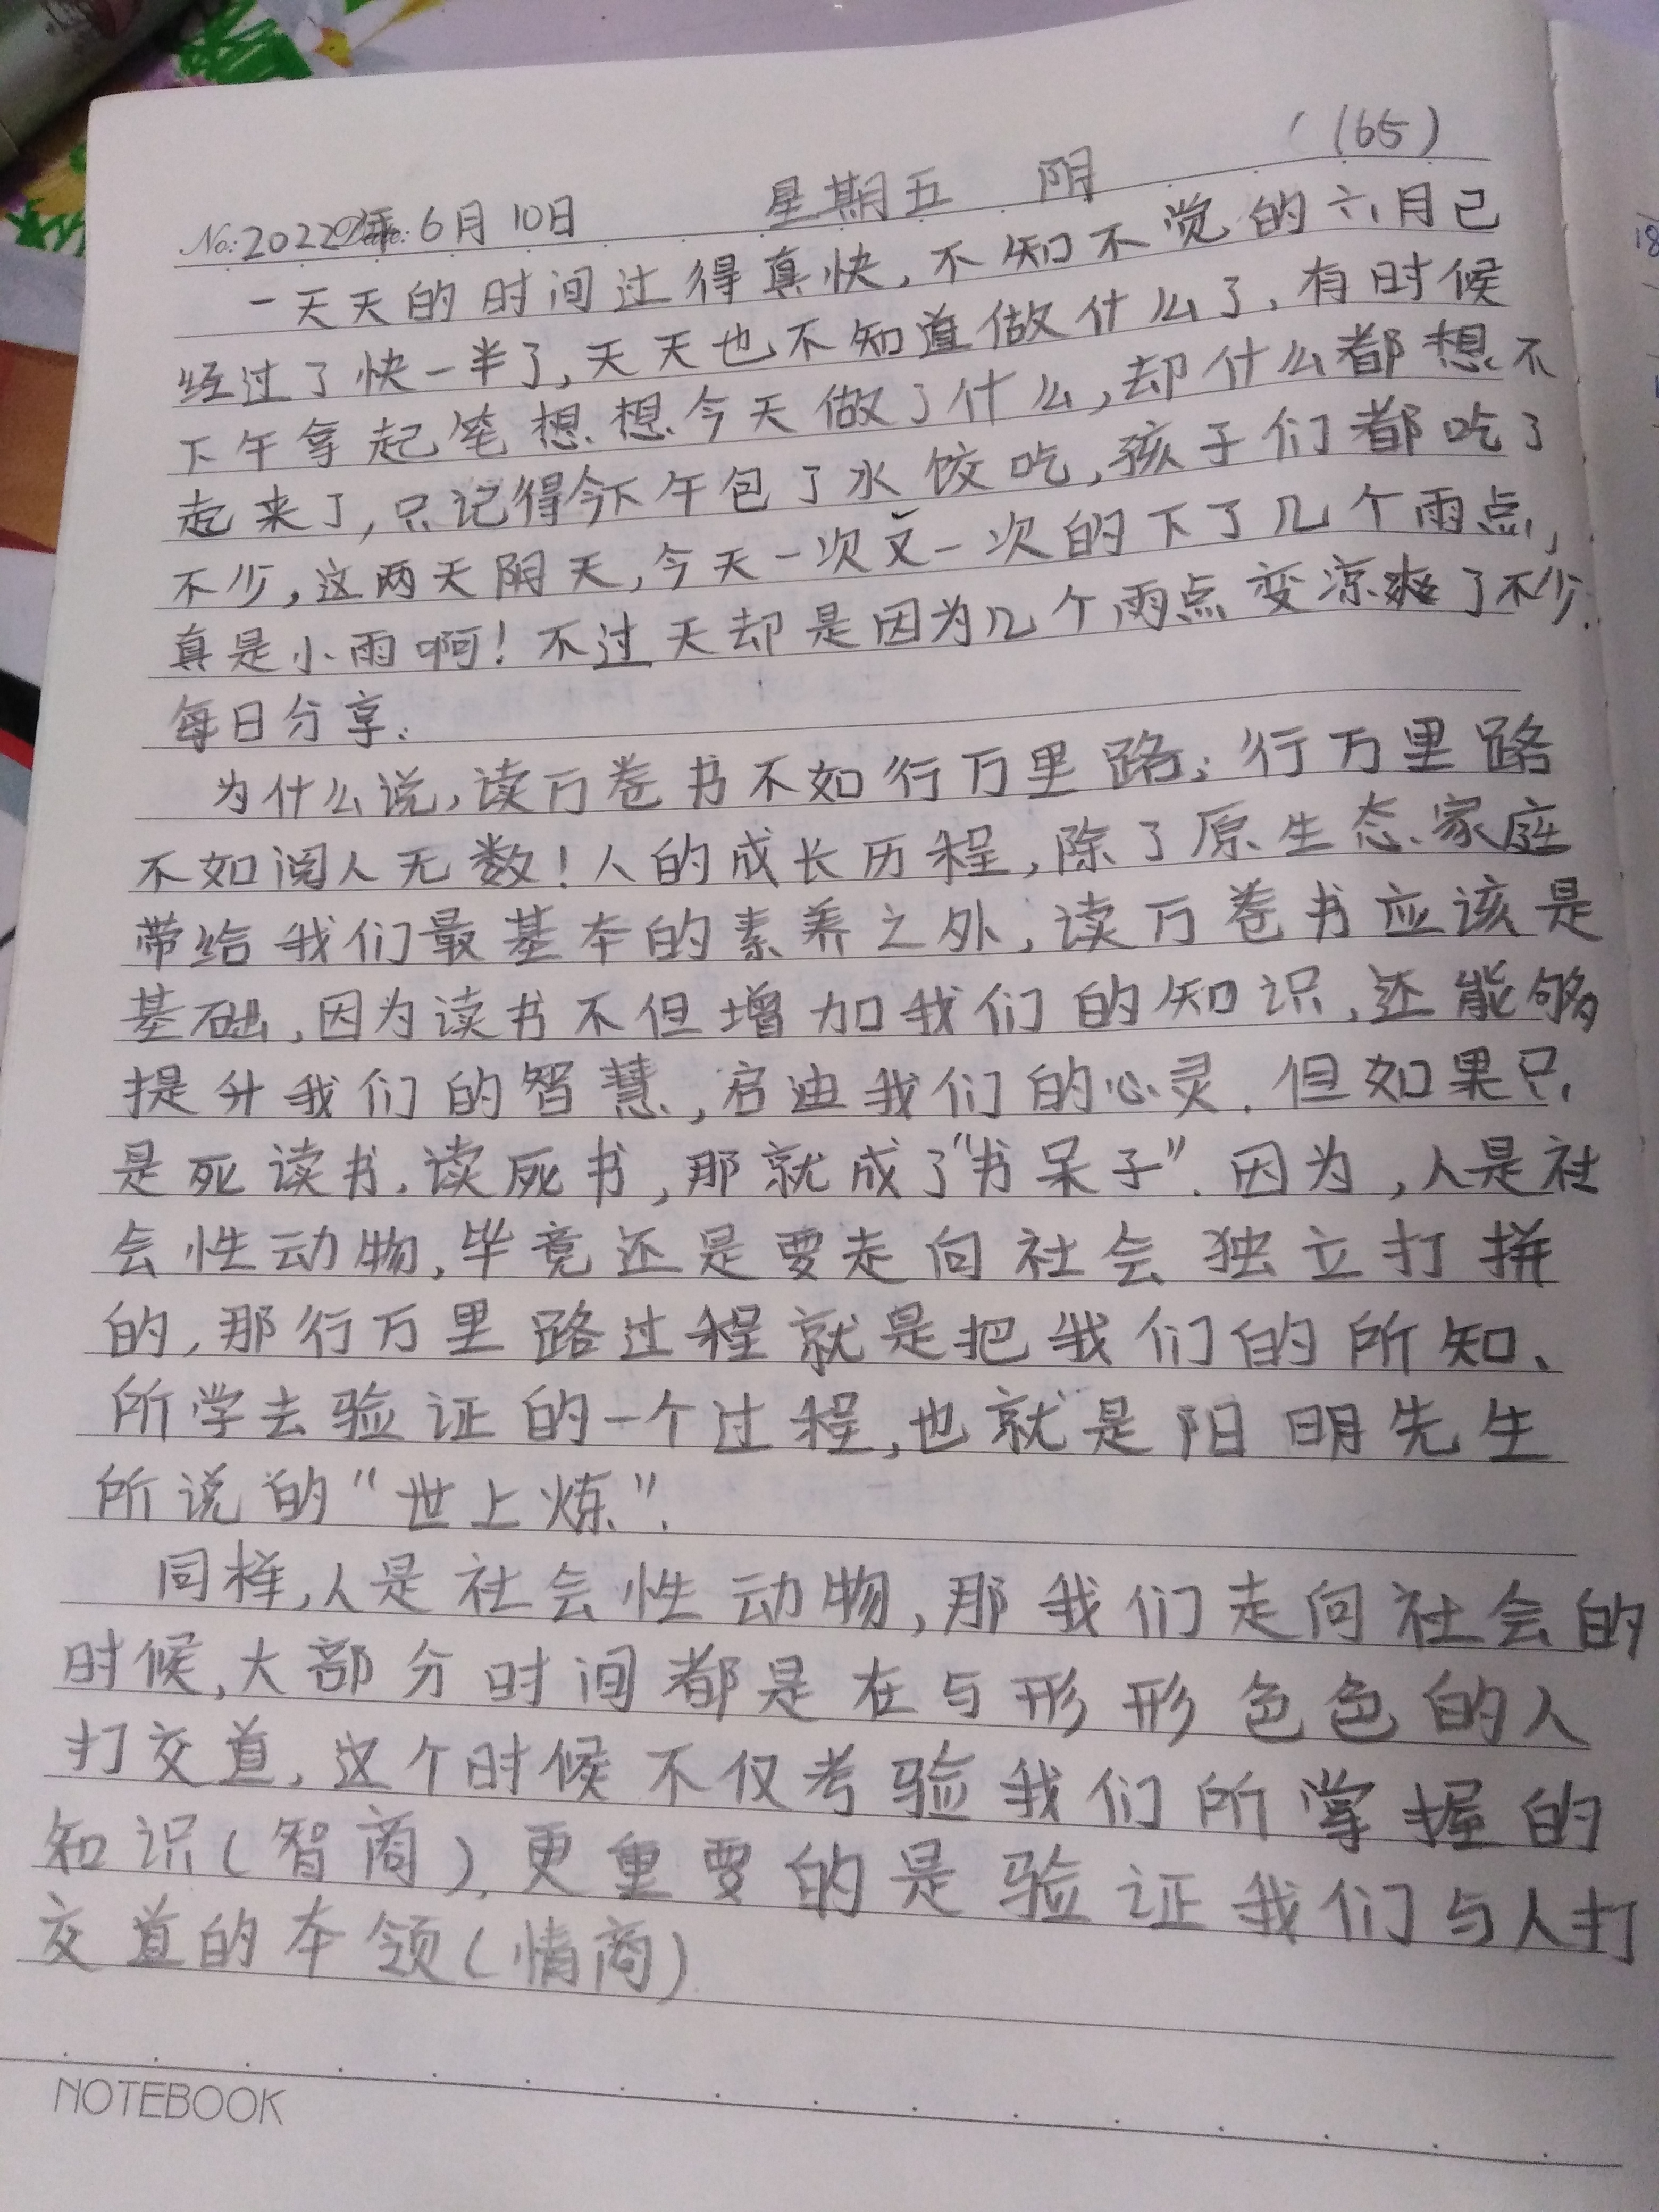 (65)
No: 2022年 6月 10日 星期五 阴
一天天的时间过得真快,不知不觉的六月已
经过了快一半了,天天也不知道做什么了,有时候
下午拿起笔想想今天做了什么,却什么都想不
起来了,只记得今下午包了水饺吃,孩子们都吃了
不少,这两天阴天,今天一次又一次的下了几个雨点,
真是小雨啊!不过天却是因为几个雨点变凉爽了不少.
每日分享.
为什么说,读万卷书不如行万里路;行万里路
不如阅人无数!人的成长历程,除了原生态家庭
带给我们最基本的素养之外,读万卷书应该是
基础,因为读书不但增加我们的知识,还能够
提升我们的智慧,启迪我们的心灵.但如果只
是死读书,读死书,那就成了"书呆子".因为,人是社
会性动物,毕竟还是要走向社会独立打拼
的,那行万里路过程就是把我们的所知、
所学去验证的一个过程,也就是阳明先生
所说的"世上炼".
同样,人是社会性动物,那我们走向社会的
时候,大部分时间都是在与形形色色的人
打交道,这个时候不仅考验我们所掌握的
知识(智商),更重要的是验证我们与人打
交道的本领(情商)
NOTEBOOK
18